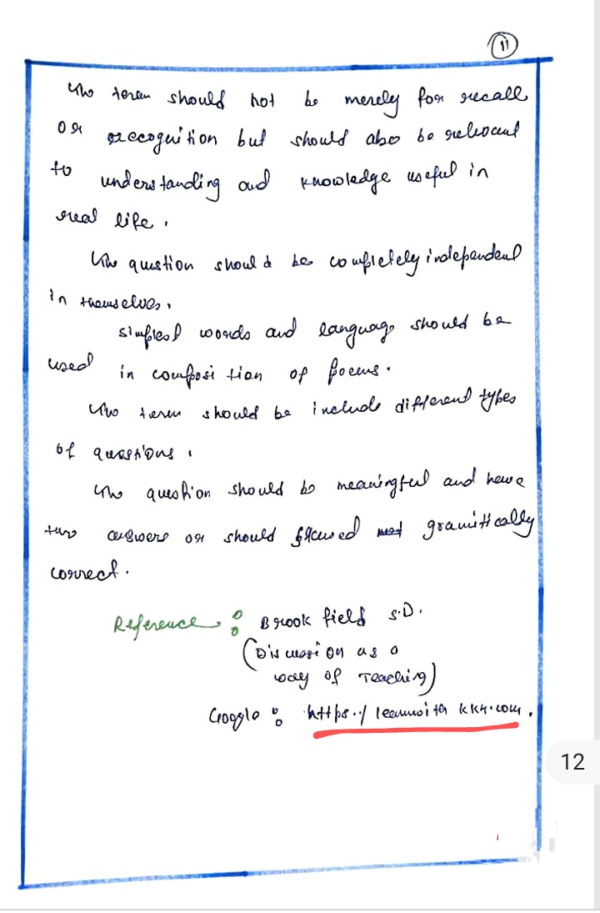 11
The term should not be merely for recall
or recognition but should also be relevant
to understanding and knowledge useful in
real life.
The question should be completely independent
in themselves.
simplest words and language should be
used in composition of
The term should be include different types
of questions.
The question should be meaningful and have
two answers or should not
correct.
Reference :
Brook field S.D.
(Discussion as a
way of Teaching)
Google : https:/ learnwith kkh.com.
12